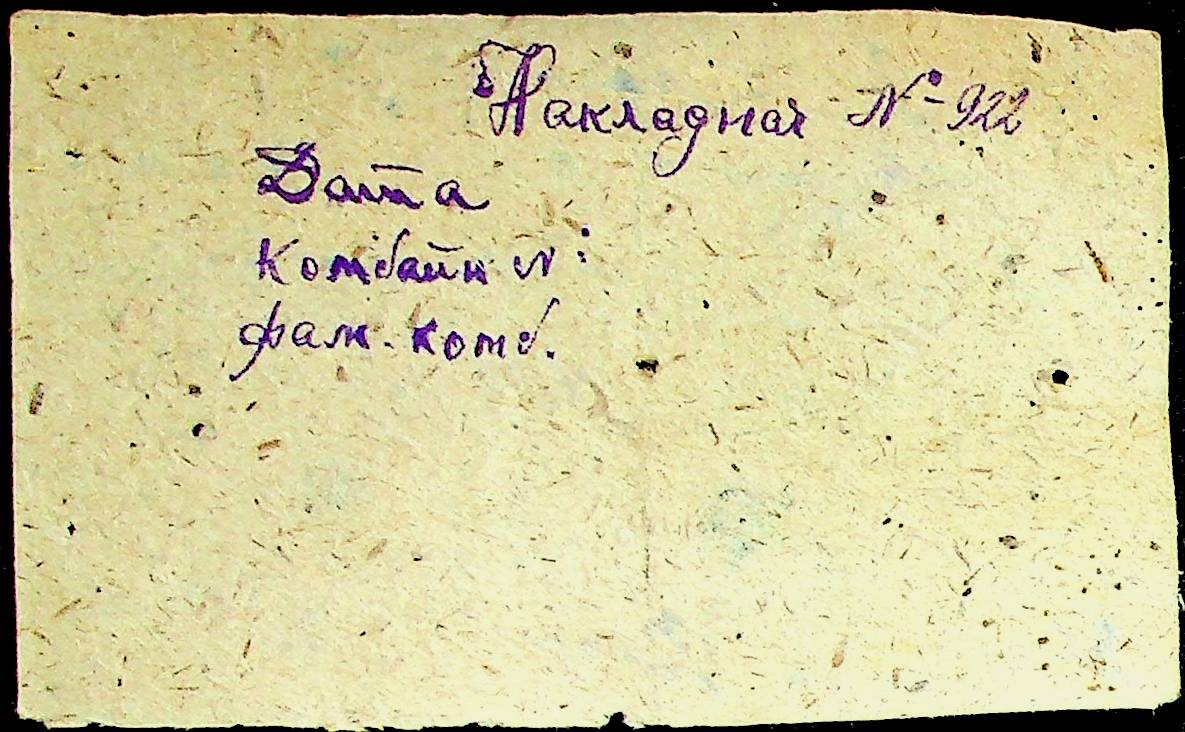 Накладная № - 922
Дата
Комбайн №:
фам. комб.